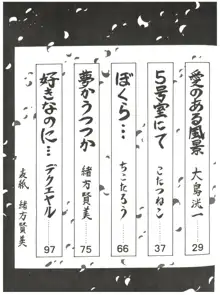 愛のある風景
大島洸一
29
5号室にて
こたつねこ
37
ぼくら…
ちこたろう
66
夢かうつつか
緒方賢美
75
好きなのに…
デクエヤル
97
表紙 緒方賢美